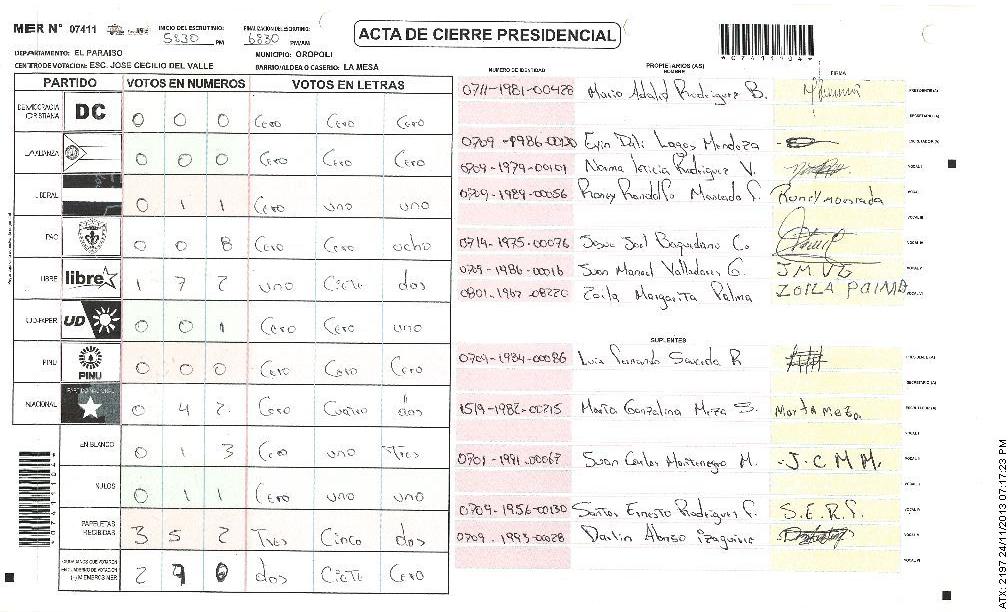 MER N° 07411 INICIO DEL ESCRUTINIO: 5:30 PM FINALIZACION DEL ESCRUTINIO: 6:30 PM/AM
ACTA DE CIERRE PRESIDENCIAL
*07411104*
DEPARTAMENTO: EL PARAISO MUNICIPIO: OROPOLI
CENTRO DE VOTACION: ESC. JOSE CECILIO DEL VALLE BARRIO/ALDEA O CASERIO: LA MESA
PARTIDO VOTOS EN NUMEROS VOTOS EN LETRAS
DEMOCRACIA CRISTIANA DC 0 0 0 Cero Cero Cero
LA ALIANZA 0 0 0 Cero Cero Cero
LIBERAL 0 1 1 Cero uno uno
PAC 0 0 8 Cero Cero ocho
LIBRE libre 1 7 2 uno Ciete dos
UD-FAPER UD 0 0 1 Cero Cero uno
PINU PINU 0 0 0 Cero Cero Cero
NACIONAL PARTIDO NACIONAL 0 4 2 Cero Cuatro dos
EN BLANCO 0 1 3 Cero uno Tres
NULOS 0 1 1 Cero uno uno
PAPELETAS RECIBIDAS 3 5 2 Tres Cinco dos
CIUDADANOS QUE VOTARON EN CUADERNO DE VOTACION (+) MIEMBROS MER 2 7 0 dos Ciete Cero
NUMERO DE IDENTIDAD PROPIETARIOS (AS) NOMBRE FIRMA
0711-1981-00428 Mario Adalid Rodriguez B. PRESIDENTE(A)
SECRETARIO (A)
0709-1986-00120 Lagos Mendoza ESCRUTADOR (A)
0709-1979-00101 Norma Leticia Rodriguez V. VOCAL I
0709-1989-00056 Roney Randolfo Moncada Roneymoncada VOCAL
VOCAL III
0714-1975-00076 Josue Joel Baquedano C. VOCAL IV
0705-1986-00016 Juan Manuel Valladares G. JMVG VOCAL V
0801-1967-08220 Zoila Margarita Palma ZOILA PALMA VOCAL VI
SUPLENTES
0709-1984-00086 Luis Fernando Sauceda R PRESIDENTE(A)
SECRETARIO (A)
1519-1982-00215 Marta Gonzalina Meza S. Marta Meza ESCRUTADOR(A)
VOCAL I
0701-1991-00067 Juan Carlos Montenegro M. J.C M M. VOCAL II
VOCAL III
0709-1956-00130 Santos Ernesto Rodriguez S.E.R.F. VOCAL IV
0709-1993-00028 Darlin Alonso Izaguirre VOCAL V
VOCAL VI
*07411104*
ATX: 2197 24/11/2013 07:17:23 PM